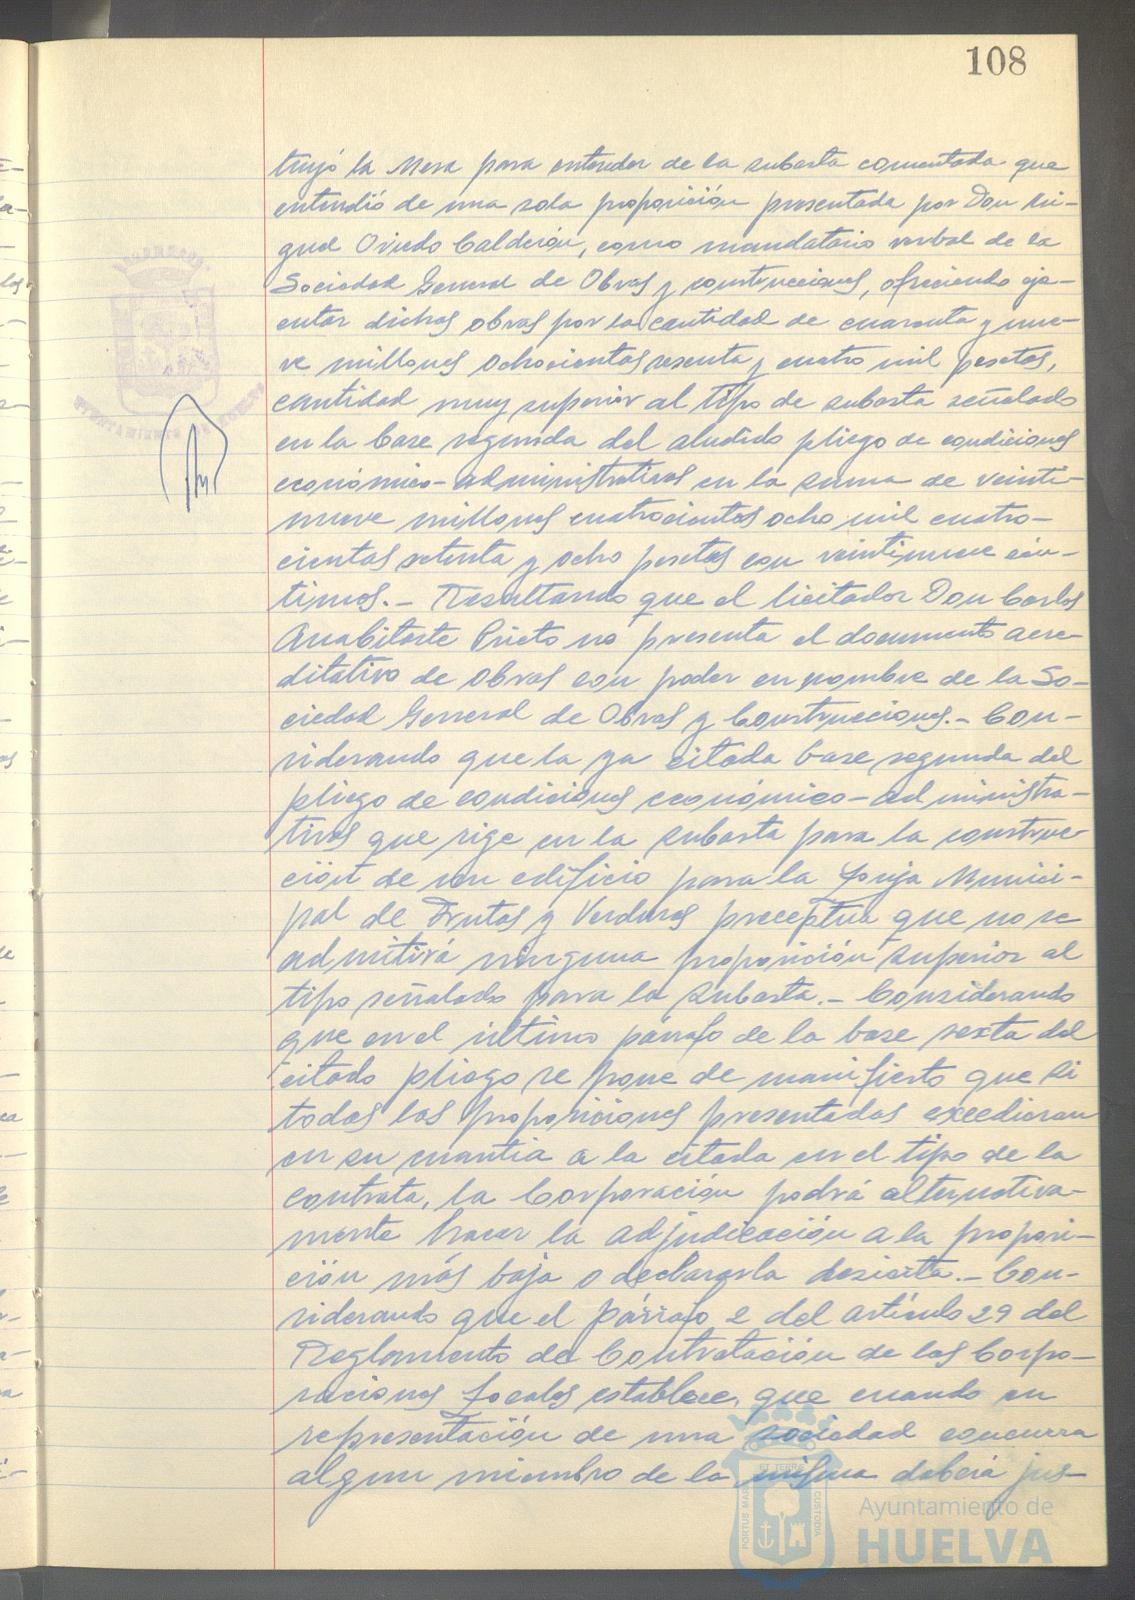 108
tuyó la Mesa para entender de la subasta comentada que
entendió de una sola proposición presentada por Don Mi-
guel Oviedo Calderón, como mandatario verbal de la
Sociedad General de Obras y construcciones, ofreciendo eje-
cutar dichas obras por la cantidad de cuarenta y nue-
ve millones ochocientas sesenta y cuatro mil pesetas,
cantidad muy superior al tipo de subasta señalado
en la base segunda del aludido pliego de condiciones
económico-administrativas en la suma de veinti-
nueve millones cuatrocientas ocho mil cuatro-
cientas setenta y ocho pesetas con veintinueve cén-
timos.- Resultando que el licitador Don Carlos
Anabitarte Prieto no presenta el documento acre-
ditativo de obras con poder en nombre de la So-
ciedad General de Obras y Construcciones.- Con-
siderando que la ya citada base segunda del
pliego de condiciones económico-administra-
tivas que rige en la subasta para la construc-
ción de un edificio para la Lonja Munici-
pal de Frutas y Verduras preceptúa que no se
admitirá ninguna proposición superior al
tipo señalado para la subasta.- Considerando
que en el último párrafo de la base sexta del
citado pliego se pone de manifiesto que si
todas las proposiciones presentadas excedieran
en su cuantía a la citada en el tipo de la
contrata, la Corporación podrá alternativa-
mente hacer la adjudicación a la proposi-
ción más baja o declararla desierta.- Con-
siderando que el párrafo 2 del artículo 29 del
Reglamento de Contratación de las Corpo-
raciones Locales establece, que cuando en
representación de una sociedad concurra
algun miembro de la misma deberá jus-
AYUNTAMIENTO DE HUELVA
PORTUS MARIS ET TERRAE CUSTODIA
Ayuntamiento de
HUELVA